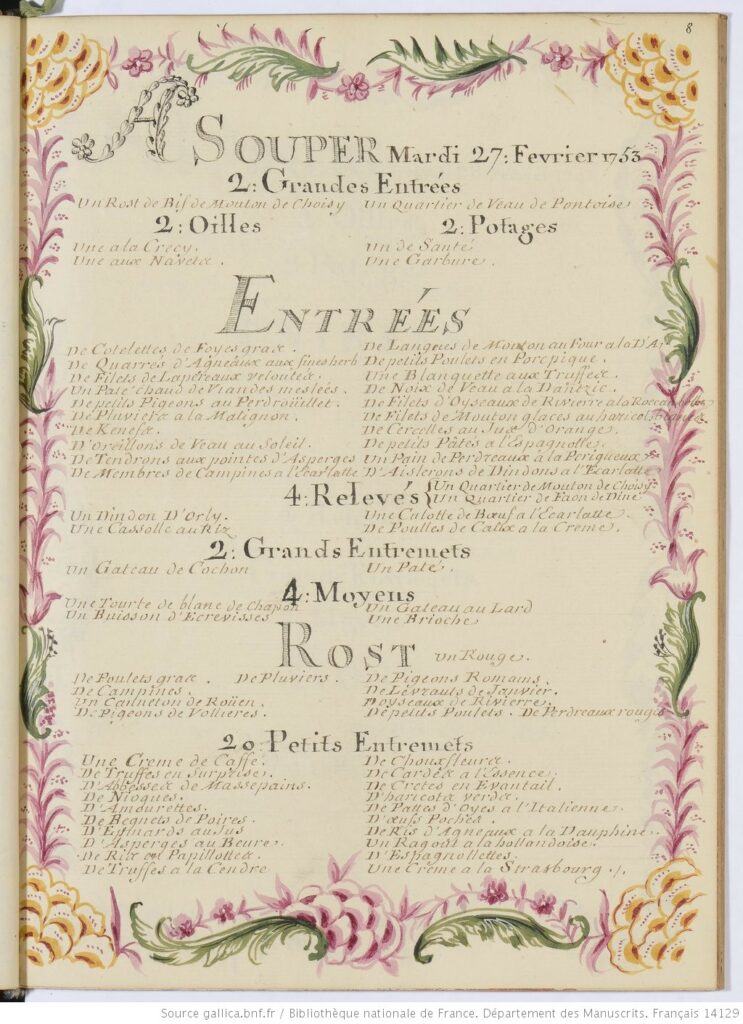 8
A SOUPER Mardi 27: Fevrier 1753
2: Grandes Entrées
Un Rost de Bif de Mouton de Choisy
Un Quartier de Veau de Pontoise
2: Oilles
2: Potages
Une a la Crecy.
Une aux Navets.
Un de Santé
Une Garbure.
ENTRÉES
De Cotelettes de Foyes gras.
De Quarrés d'Agneaux aux fines herb
De Filets de Lapereaux veloutés
Un Paté chaud de Viandes meslées.
Un petits Pigeons au Perdroüillet.
De Pluviers a la Matignon.
De Kenefs.
D'Oreillons de Veau au Soleil.
De Tendrons aux pointes d'Asperges
De Membres de Campines a l'Ecarlatte
De Langues de Mouton au Four a la
De petits Poulets en Porcpique.
Une Blanquette aux Truffes.
De Noix de Veau a la Dantzic.
De Filets d'Oyseaux de Rivierre a la
De Filets de Mouton glacés au
De Cercelles au Jus d'Orange.
De petits Pâtés a l'Espagnolle.
Un Pain de Perdreaux a la Perigueux
D'Aislerons de Dindons a l'Ecarlatte
4: Relevés
Un Quartier de Mouton de Choisy
Un Quartier de Faon de Dine
Un Dindon D'Orly.
Une Cassolle au Riz
Une Culotte de Bœuf a l'Ecarlatte
De Poulles de Caux a la Creme.
2: Grands Entremets
Un Gateau de Cochon
Un Paté.
4: Moyens
Une Tourte de blanc de Chapon
Un Buisson d'Ecrevisses
Un Gateau au Lard
Une Brioche
ROST un Rouge.
De Poulets gras. De Pluviers.
De Campines.
Un Canneton de Roüen.
De Pigeons de Vollieres.
De Pigeons Romains.
De Lévrauts de Janvier.
D'oyseaux de Rivierre.
De petits Poulets. De Perdreaux rouges
20: Petits Entremets
Une Creme de Caffé.
De Truffes en Surprise.
D'Abbesses de Massepains.
De Nioques.
D'Amourettes.
De Begnets de Poires.
D'Epinards au Jus
D'Asperges au Beure.
De Ris en Papillottes.
De Truffes a la Cendre
De Chouxfleurs.
De Cardes a l'Essence.
De Cretes en Evantail.
D'haricots verds.
De Pattes d'Oyes a l'Italienne.
D'œufs Pochés.
De Ris d'Agneaux a la Dauphine.
Un Ragout a la hollandoise.
D'Espagnollettes.
Une Creme a la Strasbourg ./.
Source gallica.bnf.fr / Bibliothèque nationale de France. Département des Manuscrits. Français 14129